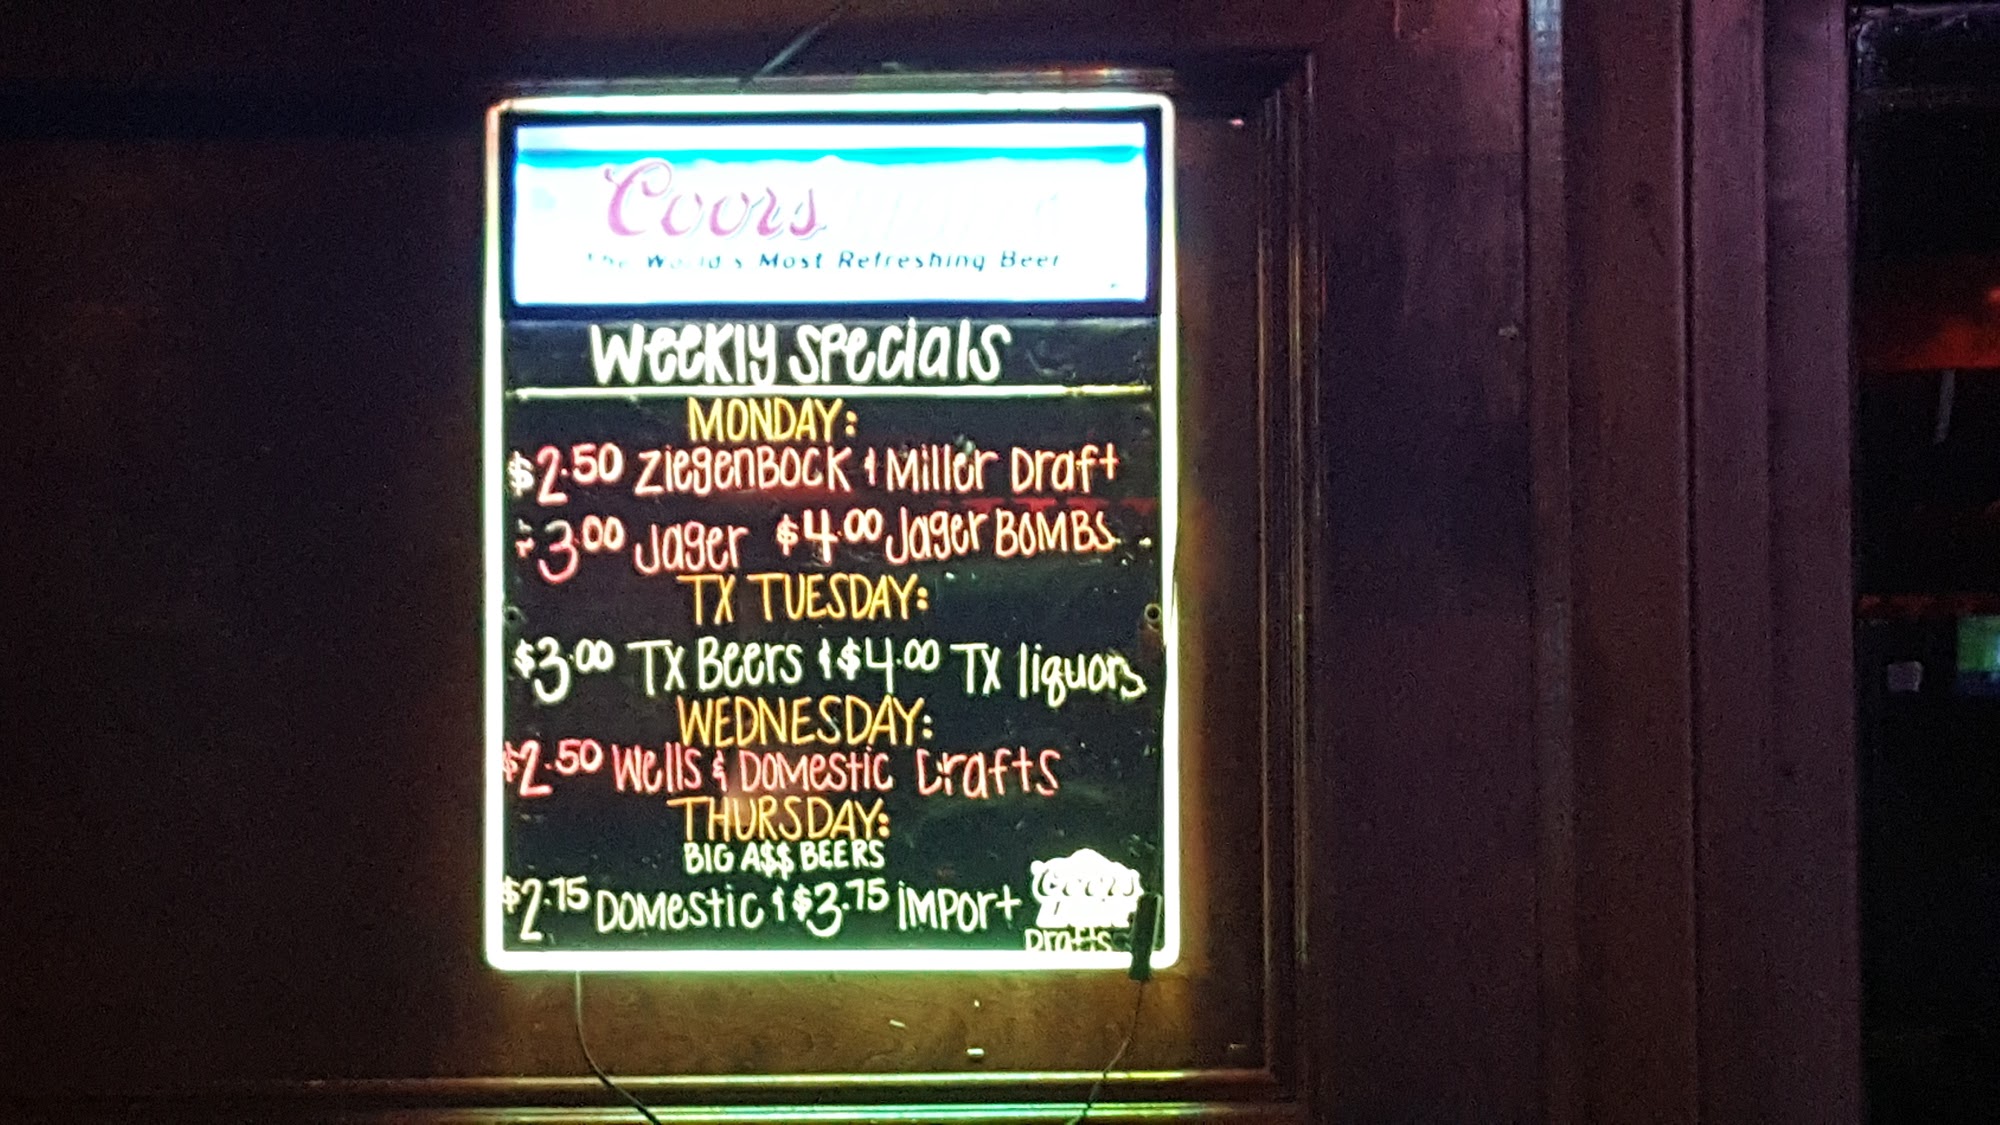 Coors
The World's Most Refreshing Beer
WEEKLY SPECIALS
MONDAY:
$2.50 ZIEGENBOCK & MILLER DRAFT
$3.00 JAGER $4.00 JAGER BOMBS
TX TUESDAY:
$3.00 TX BEERS & $4.00 TX LIQUORS
WEDNESDAY:
$2.50 WELLS & DOMESTIC DRAFTS
THURSDAY:
BIG A$$ BEERS
$2.75 DOMESTIC & $3.75 IMPORT
Coors
DRAFTS